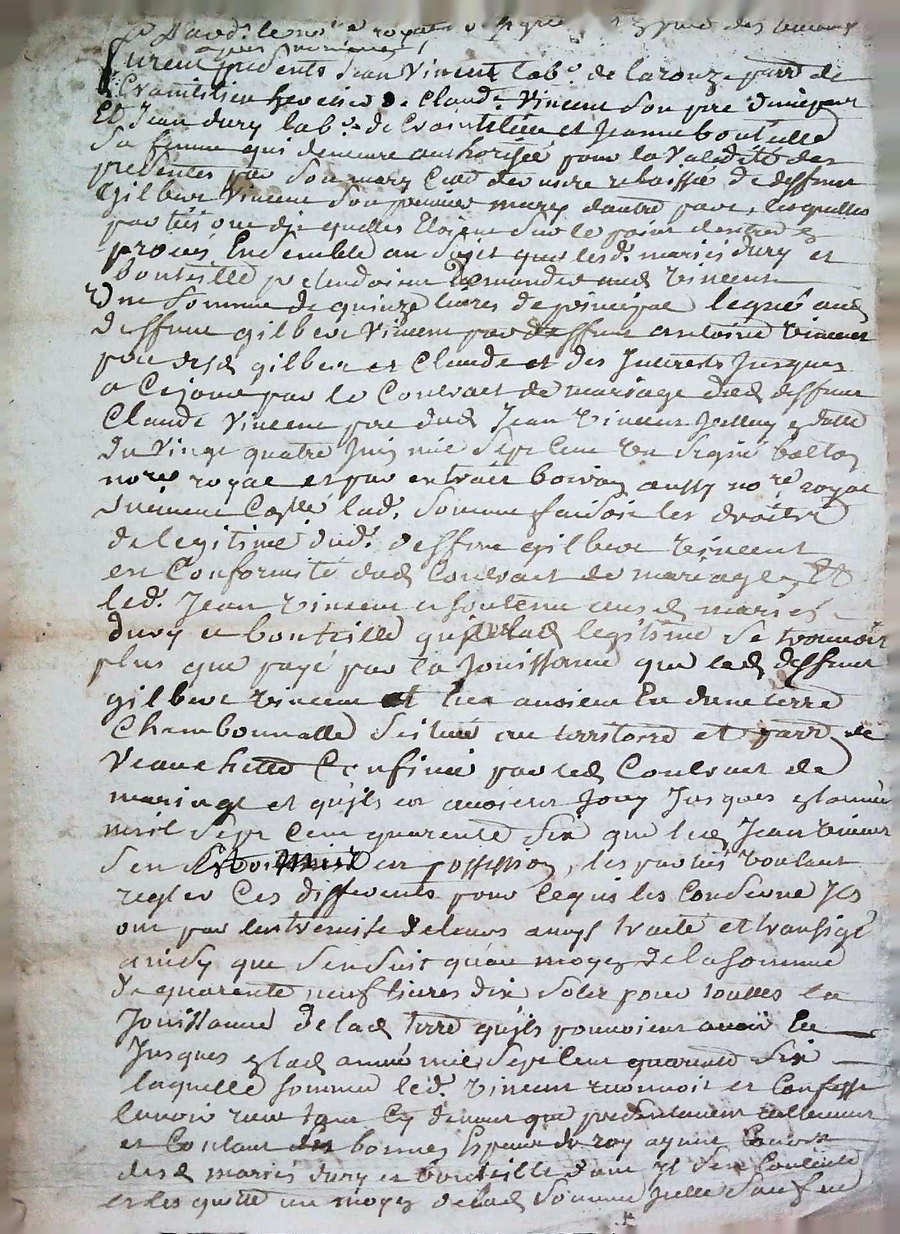 Pard. le no.re royal
furent presents Jean Vincent lab.r de laronze parr. de
Craintilieu heretier de Claude Vincent son pere d'une part
Et Jean dury lab.r de Craintilieu et Jeanne bouteille
Sa femme qui demeure authorisée pour la validité des
presentes par Son mary Icelle vefve de deffunt
Gilbert Vincent Son premier mary dautre part, lesquelles
parties ont dit quelles etoient Sur le point dentrer en
procés Ensemble au Sujet que lesd. mariés dury et
bouteille pretendoient demander aud Vincent
Une Somme de quinze livres de principal legué aud
deffunt gilbert Vincent par deffunt antoine Vincent
pere desd gilbert et Claude et des Interests Jusques
a Ce jour par le Contract de mariage dud deffunt
Claude Vincent pere dud Jean Vincent en datte
du Vingt quatre Juin mil Sept Cent Un Signé
no.re royal et par extrait aussy no.re royal
lad. Somme faisoit les droits
de legitime dud. deffunt gilbert Vincent
en Conformité dud Contract de mariage, Et
led. Jean Vincent a soutenu ausd mariés
dury et bouteille que lad legitime Se trouvoit
plus que payé par la Jouissance que led deffunt
gilbert Vincent et eux avoient Eu dune terre
Chambonnalle Scituée au territoire et parr. de
Veauchette Confiné par led Contract de
mariage et quils en avoient Jouy Jusques en lannée
mil Sept Cent quarente Six que led Jean Vincent
Sen en possession, les parties voulant
regler Ces differents pour Ce qui les Concerne Ils
ont par lentremise de leurs amys traité et transigé
ainsy que Sensuit quau moyen de la Somme
de quarente neuf livres dix Sols pour touttes la
Jouissance de lad terre quils pouvoient avoir Eu
Jusques en lad année mil Sept Cent quarente Six
laquelle Somme led. Vincent reconnoit et Confesse
lavoir receu tant Cy devant que presentement reellement
et Contant en bonnes Especes de roy ayant Cours
desd mariés dury et bouteille dont Il Sen Contente
et les quitte au moyen de lad Somme